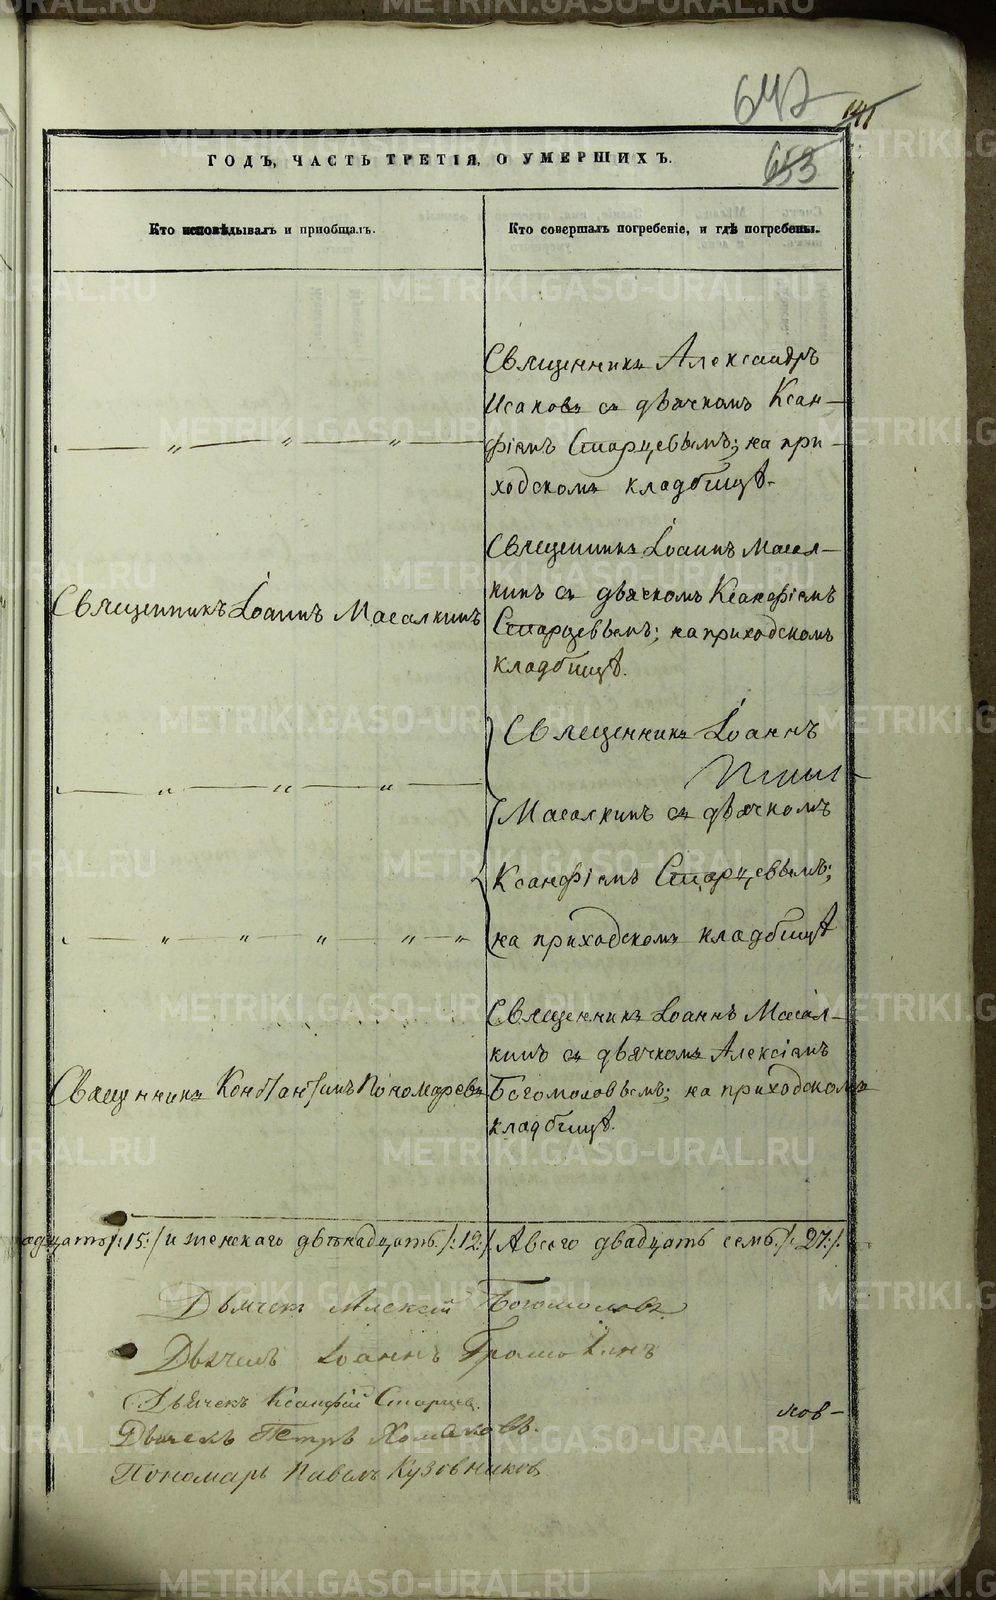 METRIKI.GASO-URAL.RU
647
141
653
ГОДЪ, ЧАСТЬ ТРЕТІЯ, О УМЕРШИХЪ.
Кто исповѣдывалъ и приобщалъ.
Кто совершалъ погребеніе, и гдѣ погребены.
Священникъ Александръ
Исаковъ съ дьячкомъ Ксан-
фіемъ Старцевымъ; на при-
ходскомъ кладбищѣ.
Священникъ Іоаннъ Масалкинъ
Священникъ Іоаннъ Масал-
кинъ съ дьячкомъ Ксанфіемъ
Старцевымъ; на приходскомъ
кладбищѣ.
Священникъ Іоаннъ
Масалкинъ съ дьячкомъ
Ксанфіемъ Старцевымъ;
на приходскомъ кладбищѣ
Священникъ Константинъ Пономаревъ
Священникъ Іоаннъ Масал-
кинъ съ дьячкомъ Алексіемъ
Богомоловымъ; на приходскомъ
кладбищѣ.
адцать /:15:/ и женскаго двѣнадцать /:12:/. А всего двадцать семь /:27:/.
Дьячекъ Алексій Богомоловъ
Дьячекъ Іоаннъ
Дьячекъ Ксанфій Старцев
Дьячекъ Петръ Хомяковъ.
Пономарь Павелъ Кузовников
ков-